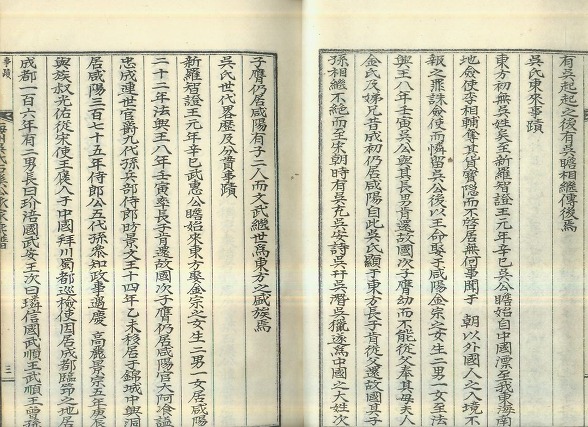 有吳起起之後有吳瞻相繼傳後焉
吳氏東來事蹟
東方初無吳姓矣至新羅智證王元年辛巳吳公瞻始自中國漂至我東海南
地僉使李相輔奪其貨寶隱而不啓居無何事聞于 朝以外國人之入境不
報之罪誅僉使而憐留吳公後以王命娶于咸陽金宗之女生二男一女至法
興王八年壬寅吳公與其長男肯還故國次子膺幼而不能從父奉其母夫人
金氏及娣兄昔成初仍居咸陽自此吳氏顯于東方長子肯從父還故國其子
孫相繼不絶而至宋朝時有吳充吳安詩吳幵吳潛吳獵遂爲中國之大姓次
子膺仍居咸陽有子二人而文武繼世爲東方之盛族焉
吳氏世代畧歷及分貫事蹟
新羅智證王元年辛巳武惠公瞻始來東方娶金宗之女生二男一女居咸陽
二十二年法興王八年壬寅率長子肯還故國次子膺仍居咸陽官大阿飡謚
忠成連世官爵九代孫兵部侍郎昉景文王十四年乙未移居于錦城中興洞
居咸陽三百七十五年侍郎公五代孫叅知政事遇慶 高麗景宗五年庚辰
與族叔光佑從宋使王襃入于中國拜川蜀都巡檢使因居成都臨邛之地居
成都一百六年有二男長曰玠涪國武安王次曰璘信國武順王武順王曾孫
事蹟
三